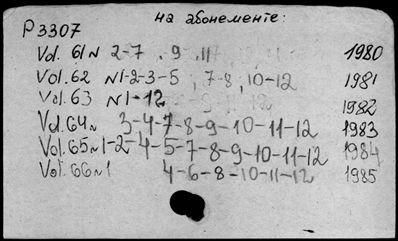 на абонементе:
Р3307
Vol. 61 N 2-7, 9, 11 1980
Vol. 62 N1-2-3-5, 7-8, 10-12 1981
Vol. 63 N1-12 1982
Vol. 64 N 3-4-7-8-9-10-11-12 1983
Vol. 65 N1-2-4-5-7-8-9-10-11-12 1984
Vol. 66 N1 4-6-8-10-11-12 1985